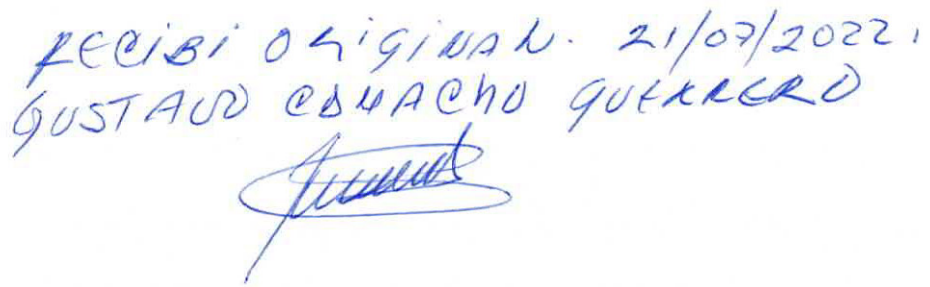 RECIBI ORIGINAL. 21/07/2022.
GUSTAVO CAMACHO GUERRERO